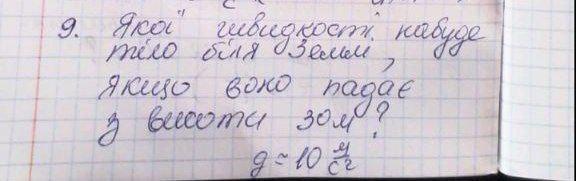 9. Якої швидкості набуде
тіло біля Землі,
якщо воно падає
з висоти 30м?
g ≈ 10 м/с²